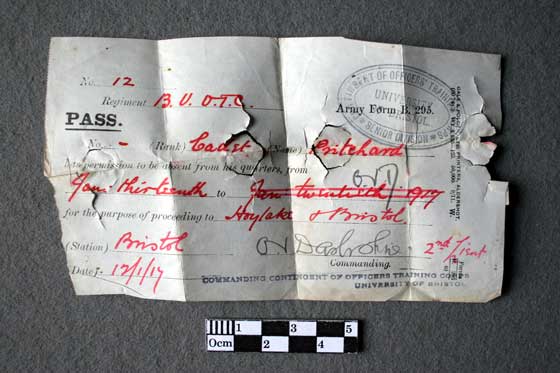 No. 12
Regiment B. U. O.T.C.
PASS.
Army Form B. 295.
CONTINGENT OF OFFICERS' TRAINING
UNIVERSITY
BRISTOL
SENIOR DIVISION
No. - (Rank) Cadet (Name) Pritchard
has permission to be absent from his quarters, from
Jan: thirteenth to Jan: twentieth 1917
for the purpose of proceeding to Hoylake & Bristol
(Station) Bristol 2nd/Lieut
Commanding.
Date:- 12/1/17
COMMANDING CONTINGENT OF OFFICERS TRAINING CORPS
UNIVERSITY OF BRISTOL
0cm 1 2 3 4 5